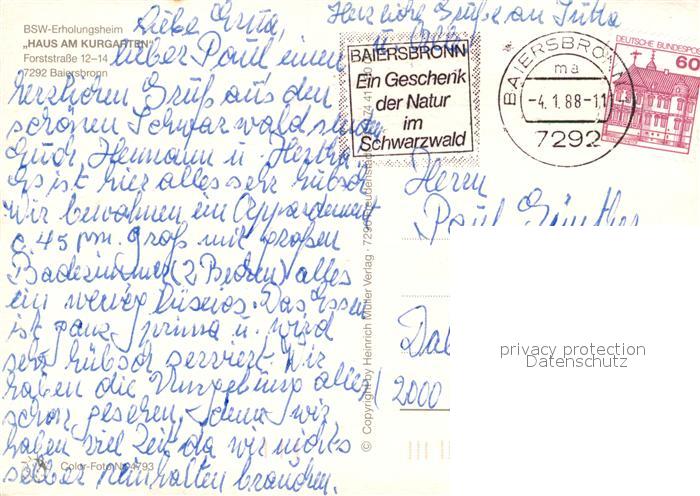 BSW-Erholungsheim
„HAUS AM KURGARTEN"
Forststraße 12-14
7292 Baiersbronn
Liebe Erna,
lieber Paul einen
herzlichen Gruß aus dem
schönen Schwarzwald senden
Euch, Hermann u. Hertha
Es ist hier alles sehr hübsch
Wir bewohnen ein Appardement
c. 45 qm. groß mit großen
Badezimmer (2 Becken) alles
ein wenig luxiös. Das Essen
ist ganz prima u. wird
sehr hübsch serviert. Wir
haben die Umgebung alles
schon gesehen, denn wir
haben viel Zeit da wir nichts
selber reinhalten brauchen.
Herzliche Grüße an Jutta
u.
BAIERSBRONN
Ein Geschenk
der Natur
im
Schwarzwald
BAIERSBRONN
ma
-4.1.88-11
7292
DEUTSCHE BUNDESPOST
60
Herrn
Paul Günther
2000
© Copyright by Heinrich Müller Verlag · 7290 Freudenstadt
Color-Foto Nr. 4793
privacy protection
Datenschutz